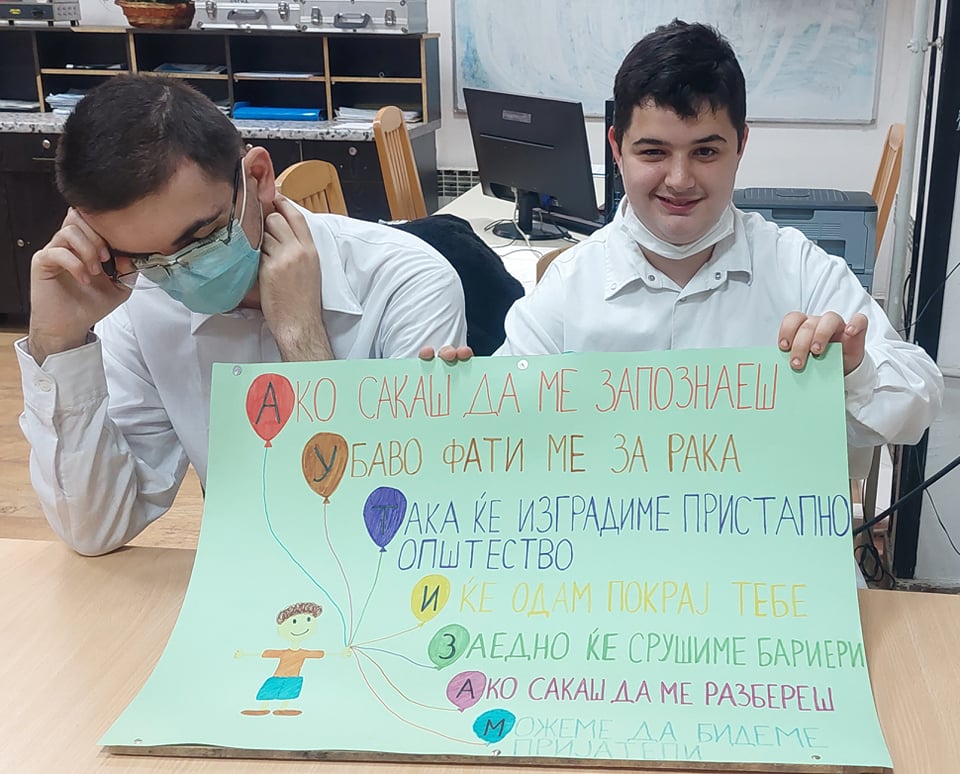 АКО САКАШ ДА МЕ ЗАПОЗНАЕШ
УБАВО ФАТИ МЕ ЗА РАКА
ТАКА ЌЕ ИЗГРАДИМЕ ПРИСТАПНО
ОПШТЕСТВО
И ЌЕ ОДАМ ПОКРАЈ ТЕБЕ
ЗАЕДНО ЌЕ СРУШИМЕ БАРИЕРИ
АКО САКАШ ДА МЕ РАЗБЕРЕШ
МОЖЕМЕ ДА БИДЕМЕ
ПРИЈАТЕЛИ